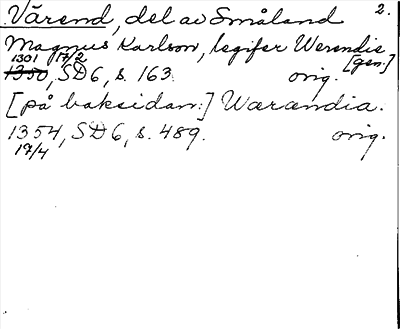 Värend, del av Småland 2.
Magnus Karlson, legifer Werendie
[gen.]
1301 17/2
1350, SD6, s. 163. orig.
[på baksidan:] Wærændia.
1354, SD6, s. 489. orig.
17/4